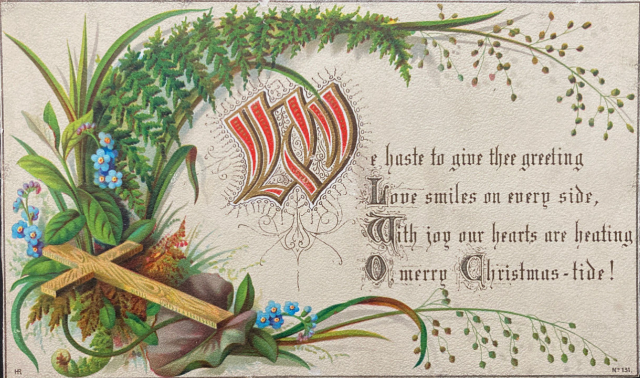 We haste to give thee greeting
Love smiles on every side,
With joy our hearts are beating
O merry Christmas-tide!
Nº 135.